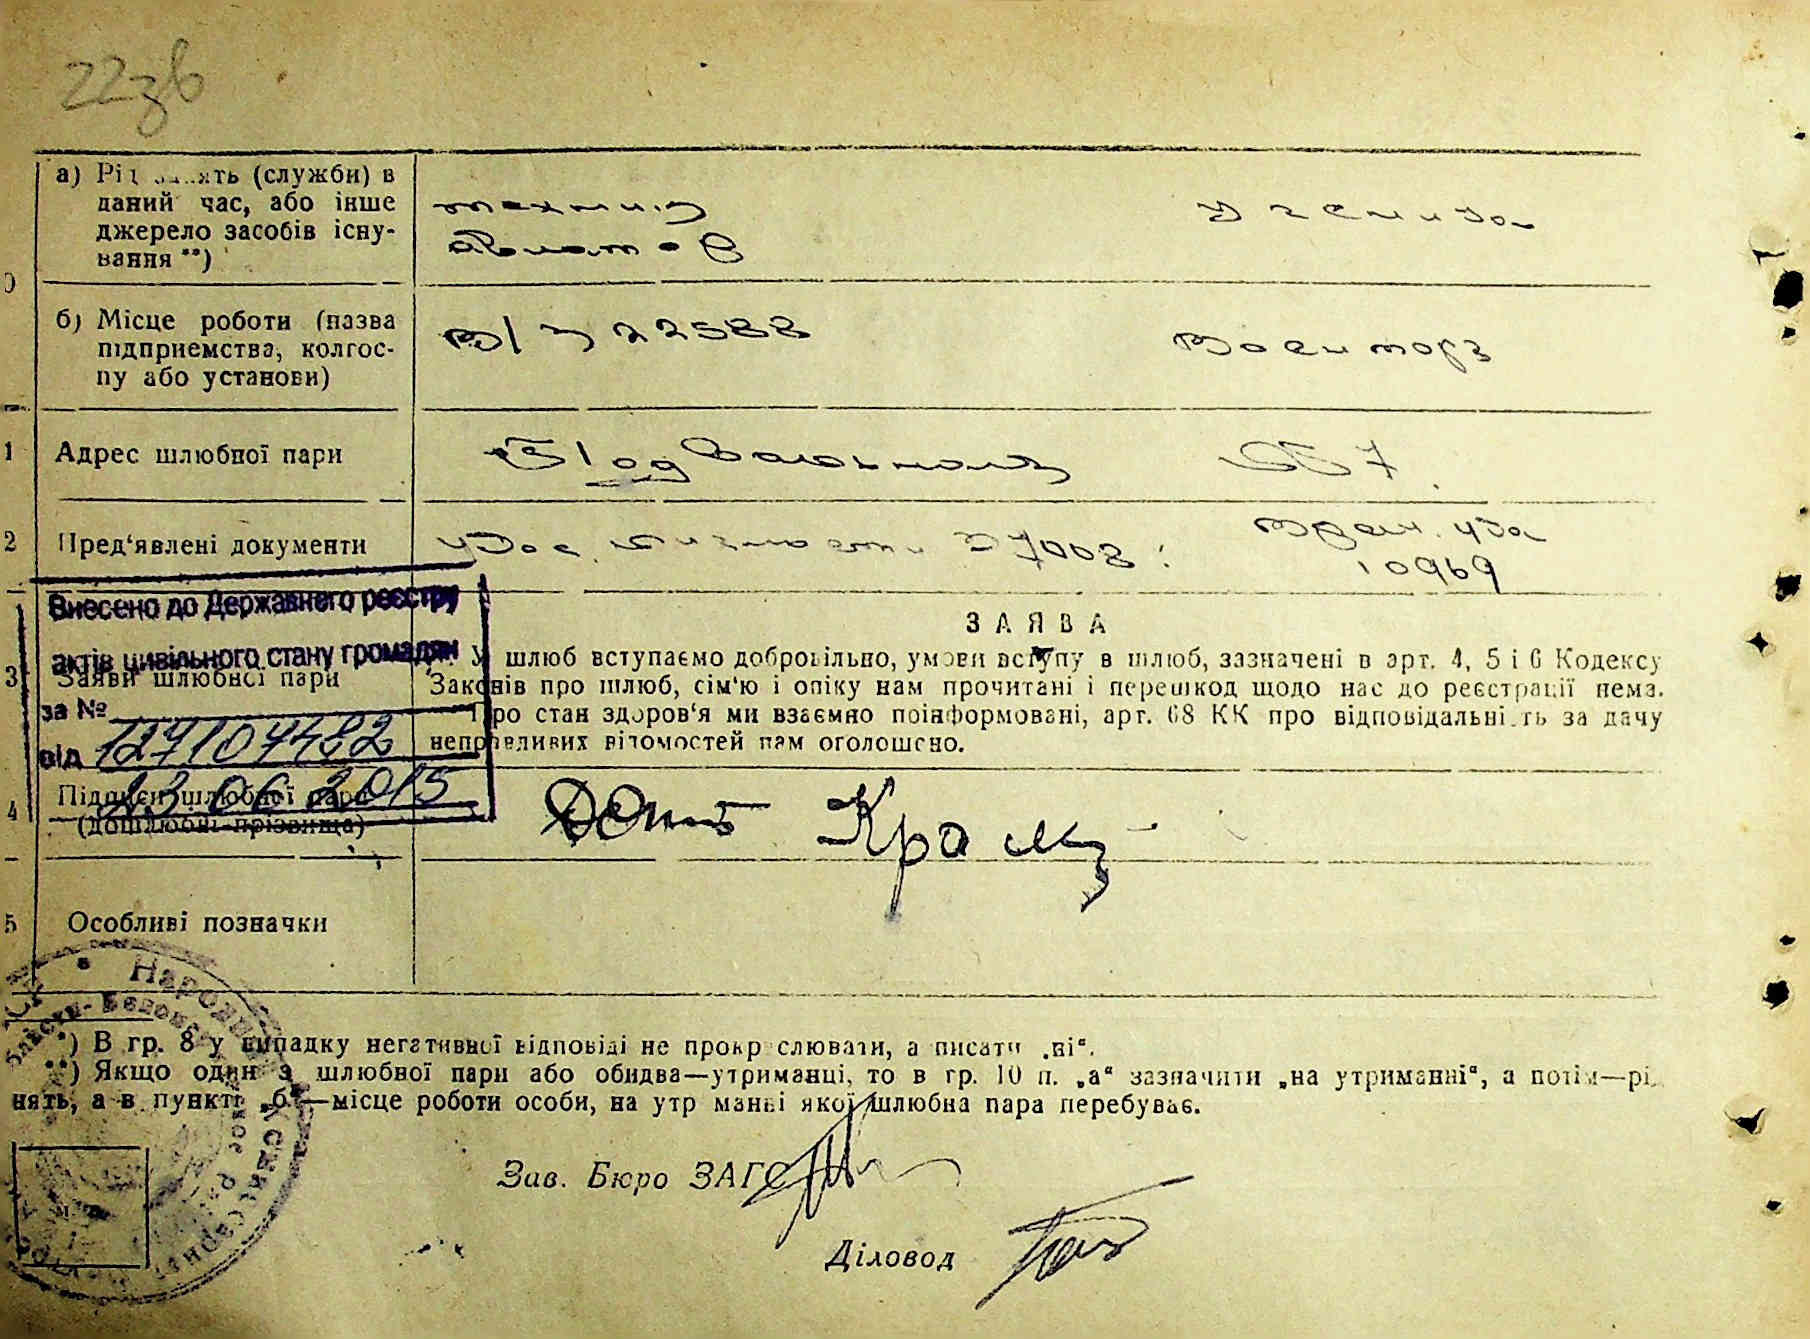 22зв
а) Рід занять (служби) в
даний час, або інше
джерело засобів існу-
вання **)
техник
авиатор
ученица
б) Місце роботи (назва
підприємства, колгос-
пу або установи)
в/ч 22588
Военторг
1 Адрес шлюбної пари
557
2 Пред‘явлені документи
удос. личности 27008
Врем. уда
10969
Внесено до Державного реєстру
актів цивільного стану громадян
за №
від 127107482
23 06 2015
3 Заяви шлюбної пари
ЗАЯВА
У шлюб вступаємо добровільно, умови вступу в шлюб, зазначені в арт. 4, 5 і 6 Кодексу
Законів про шлюб, сім‘ю і опіку нам прочитані і перешкод щодо нас до реєстрації нема.
Про стан здоров‘я ми взаємно поінформовані, арт. 68 КК про відповідальність за дачу
неправливих відомостей нам оголошено.
4 Підписи шлюбної пари
(дошлюбні прізвища)
5 Особливі позначки
*) В гр. 8 у випадку негативної відповіді не прокреслювати, а писати „ні“.
**) Якщо один з шлюбної пари або обидва—утриманці, то в гр. 10 п. „а“ зазначити „на утриманні“, а потім—рі
нять, а в пункті „б“—місце роботи особи, на утриманні якої шлюбна пара перебуває.
Зав. Бюро ЗАГС
Діловод